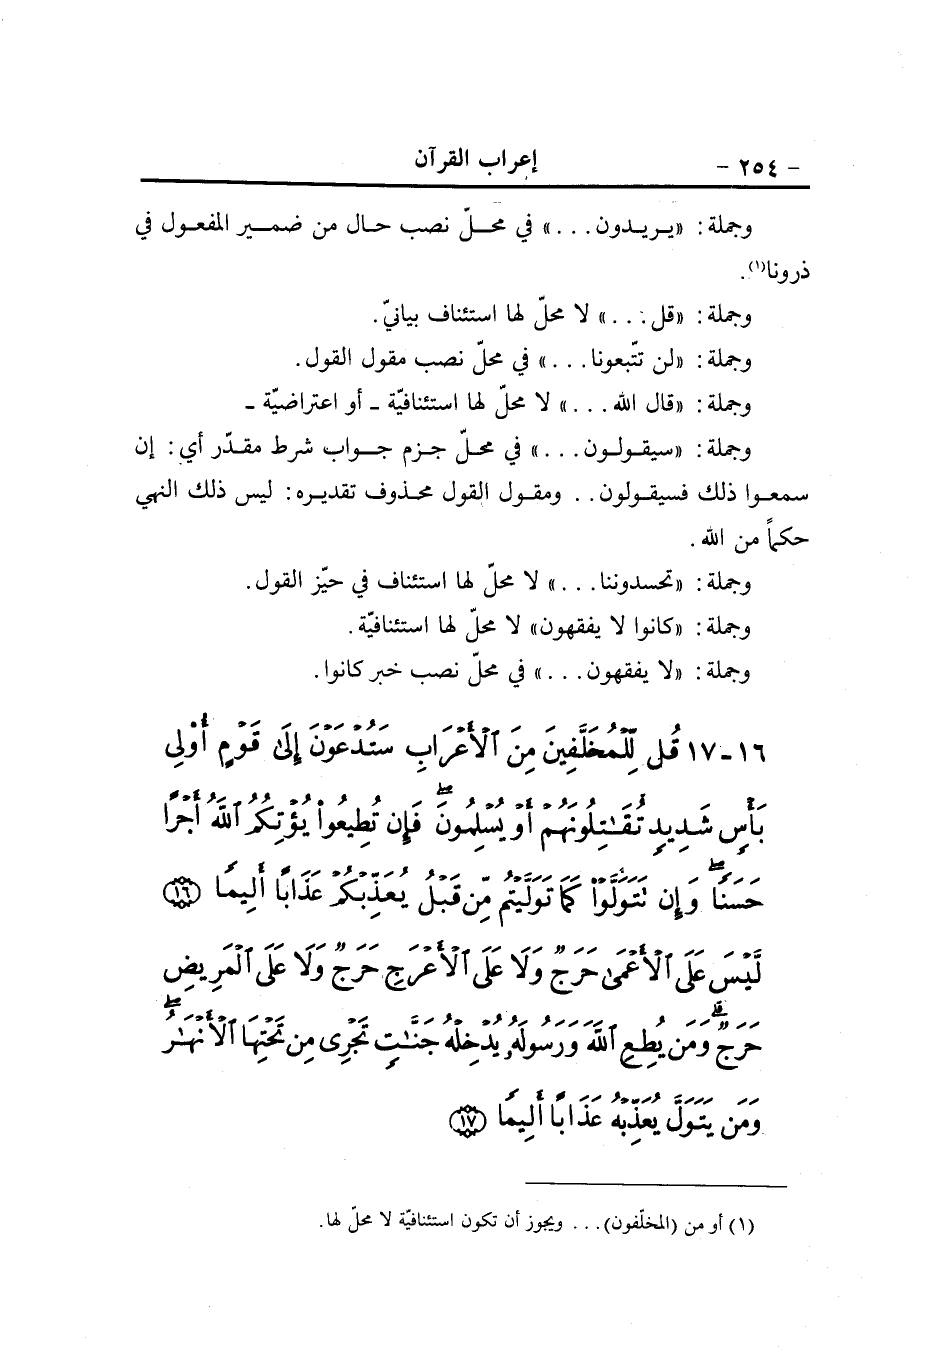 - ٢٥٤ - إعراب القرآن
وجملة: «يريدون...» في محلّ نصب حال من ضمير المفعول في
ذرونا(١).
وجملة: «قل:...» لا محلّ لها استئناف بيانيّ.
وجملة: «لن تتّبعونا...» في محلّ نصب مقول القول.
وجملة: «قال الله...» لا محلّ لها استئنافيّة ـ أو اعتراضيّة ـ
وجملة: «سيقولون...» في محلّ جزم جواب شرط مقدّر أي: إن
سمعوا ذلك فسيقولون.. ومقول القول محذوف تقديره: ليس ذلك النهي
حكماً من الله.
وجملة: «تحسدوننا...» لا محلّ لها استئناف في حيّز القول.
وجملة: «كانوا لا يفقهون» لا محلّ لها استئنافيّة.
وجملة: «لا يفقهون...» في محلّ نصب خبر كانوا.
١٦ـ١٧ قُل لِّلْمُخَلَّفِينَ مِنَ ٱلْأَعْرَابِ سَتُدْعَوْنَ إِلَىٰ قَوْمٍ أُو۟لِى
بَأْسٍ شَدِيدٍ تُقَـٰتِلُونَهُمْ أَوْ يُسْلِمُونَ ۖ فَإِن تُطِيعُوا۟ يُؤْتِكُمُ ٱللَّهُ أَجْرًا
حَسَنًا ۖ وَإِن تَتَوَلَّوْا۟ كَمَا تَوَلَّيْتُم مِّن قَبْلُ يُعَذِّبْكُمْ عَذَابًا أَلِيمًا ١٦
لَّيْسَ عَلَى ٱلْأَعْمَىٰ حَرَجٌ وَلَا عَلَى ٱلْأَعْرَجِ حَرَجٌ وَلَا عَلَى ٱلْمَرِيضِ
حَرَجٌ ۗ وَمَن يُطِعِ ٱللَّهَ وَرَسُولَهُۥ يُدْخِلْهُ جَنَّـٰتٍ تَجْرِى مِن تَحْتِهَا ٱلْأَنْهَـٰرُ ۖ
وَمَن يَتَوَلَّ يُعَذِّبْهُ عَذَابًا أَلِيمًا ١٧
(١) أو من (المخلّفون)... ويجوز أن تكون استئنافيّة لا محلّ لها.